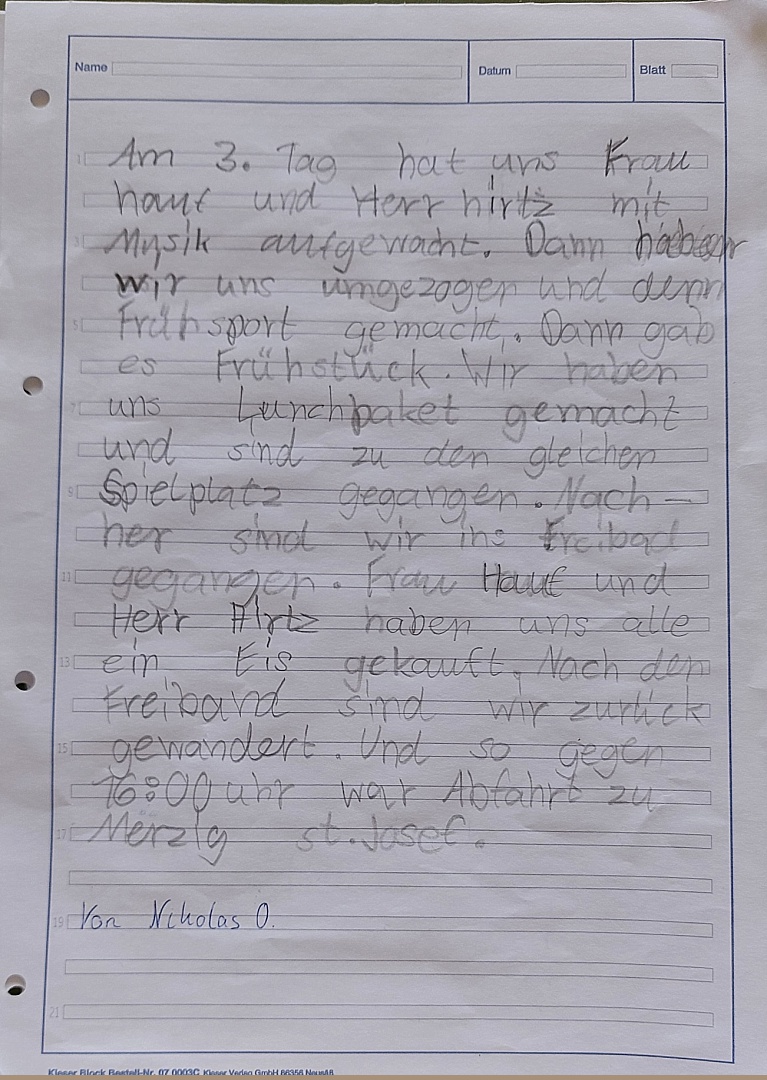 Name Datum Blatt
1 Am 3. Tag hat uns Frau
hauf und Herr hirtz mit
3 Mysik aufgewacht. Dann haben
wir uns umgezogen und denn
5 Frühsport gemacht. Dann gab
es Frühstück. Wir haben
7 uns Lunchpaket gemacht
und sind zu den gleichen
9 Spielplatz gegangen. Nach-
her sind wir ins Freibad
11 gegangen. Frau Hauf und
Herr Hirtz haben uns alle
13 ein Eis gekauft. Nach den
Freiband sind wir zurück
15 gewandert. Und so gegen
16:00 uhr war Abfahrt zu
17 Merzig st. Josef.
19 Von Nikolas O.
21
Kieser Block Bestell-Nr. 07 0003C Kieser Verlag GmbH 86356 Neusäß